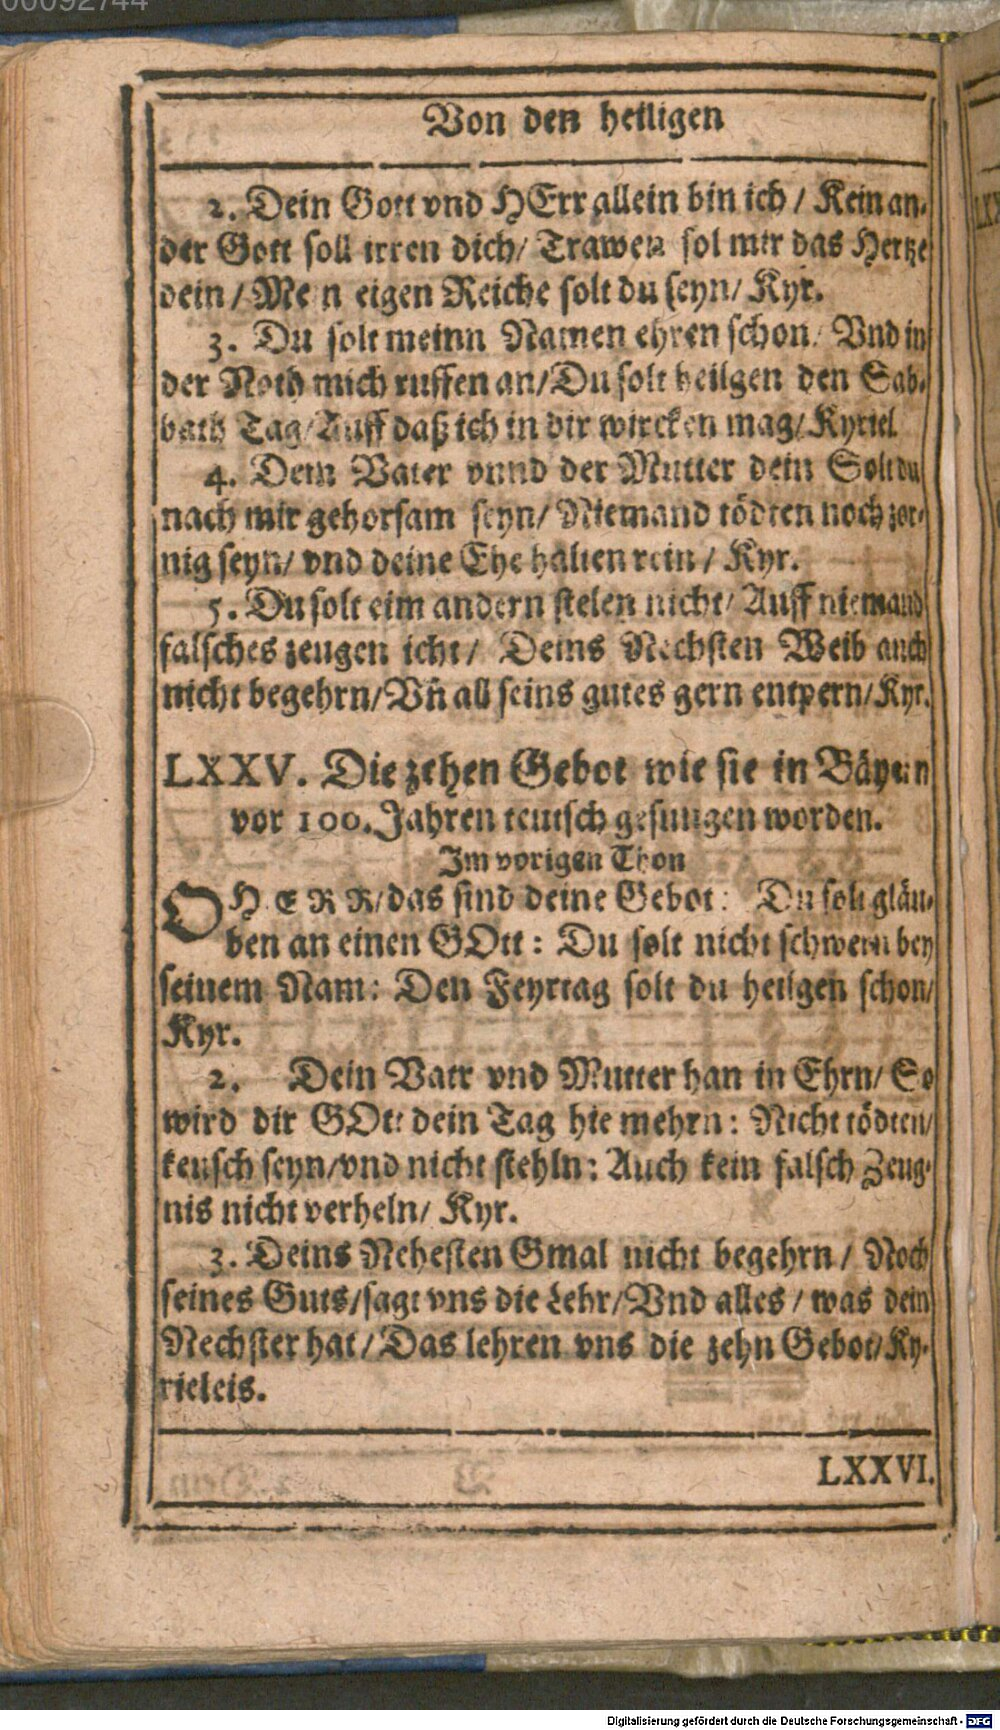 00092744
Von den heiligen
2. Dein Gott vnd HErr allein bin ich / Kein an-
der Gott soll irren dich / Trawen sol mir das Hertze
dein / Mein eigen Reiche solt du seyn / Kyr.
3. Du solt meinn Namen ehren schon / Vnd in
der Noth mich ruffen an / Du solt heilgen den Sab-
bath Tag / Auff daß ich in dir wircken mag / Kyriel
4. Dem Vater vnnd der Mutter dein Solt du
nach mir gehorsam seyn / Niemand tödten noch zor-
nig seyn / vnd deine Ehe halten rein / Kyr.
5. Du solt eim andern stelen nicht / Auff niemand
falsches zeugen icht / Deins Nechsten Weib auch
nicht begehrn / Vñ all seins gutes gern entpern / Kyr.
LXXV. Die zehen Gebot wie sie in Bäyern
vor 100. Jahren teutsch gesungen worden.
Im vorigen Thon
O HERR / das sind deine Gebot: Du solt gläu-
ben an einen GOtt: Du solt nicht schwern bey
seinem Nam: Den Feyrtag solt du heilgen schon /
Kyr.
2. Dein Vatr vnd Mutter han in Ehrn / So
wird dir GOtt dein Tag hie mehrn: Nicht tödten /
keusch seyn / vnd nicht stehln: Auch kein falsch Zeug-
nis nicht verheln / Kyr.
3. Deins Nehesten Gmal nicht begehrn / Noch
seines Guts / sagt vns die Lehr / Vnd alles / was dein
Nechster hat / Das lehren vns die zehn Gebot / Ky-
rieleis.
LXXVI.
Digitalisierung gefördert durch die Deutsche Forschungsgemeinschaft - DFG